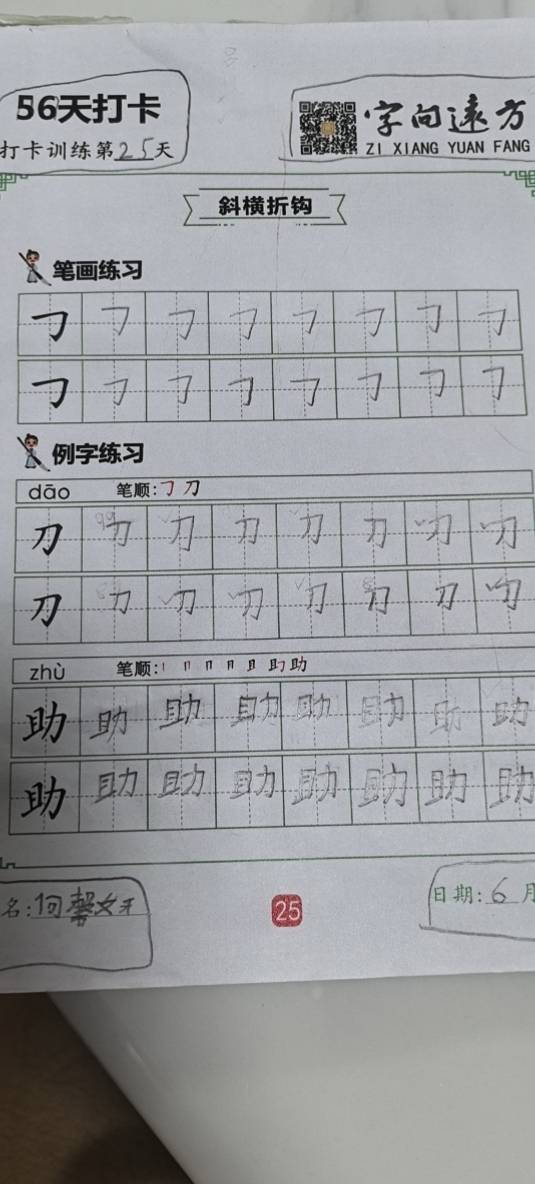 56天打卡
打卡训练第25天
字向远方
ZI XIANG YUAN FANG
斜横折钩
笔画练习
㇆ ㇆ ㇆ ㇆ ㇆ ㇆ ㇆ ㇆
㇆ ㇆ ㇆ ㇆ ㇆ ㇆ ㇆ ㇆
例字练习
dāo 笔顺:㇆ 刀
刀 刀 刀 刀 刀 刀 刀 刀
刀 刀 刀 刀 刀 刀 刀 刀
zhù 笔顺:
助 助 助 助 助 助 助 助
助 助 助 助 助 助 助 助
名:何馨
25
日期:6月